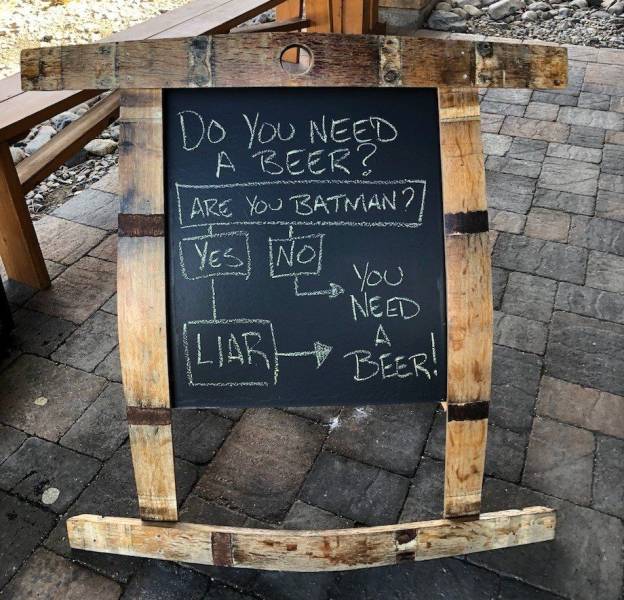 DO YOU NEED
A BEER?
ARE YOU BATMAN?
YES NO
YOU
NEED
A
LIAR BEER!